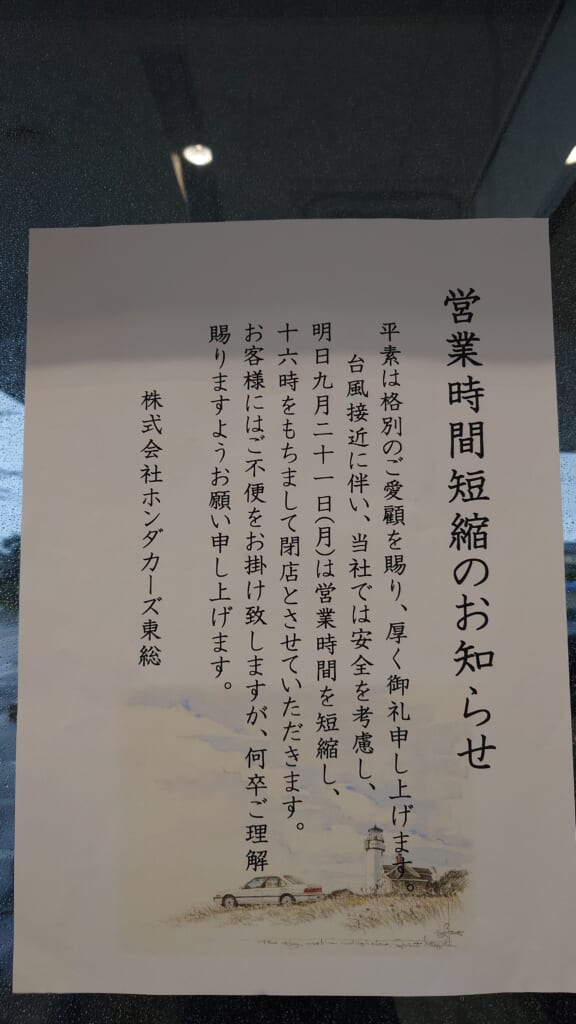 営業時間短縮のお知らせ
平素は格別のご愛顧を賜り、厚く御礼申し上げます。
台風接近に伴い、当社では安全を考慮し、
明日九月二十一日(月)は営業時間を短縮し、
十六時をもちまして閉店とさせていただきます。
お客様にはご不便をお掛け致しますが、何卒ご理解
賜りますようお願い申し上げます。
株式会社ホンダカーズ東総